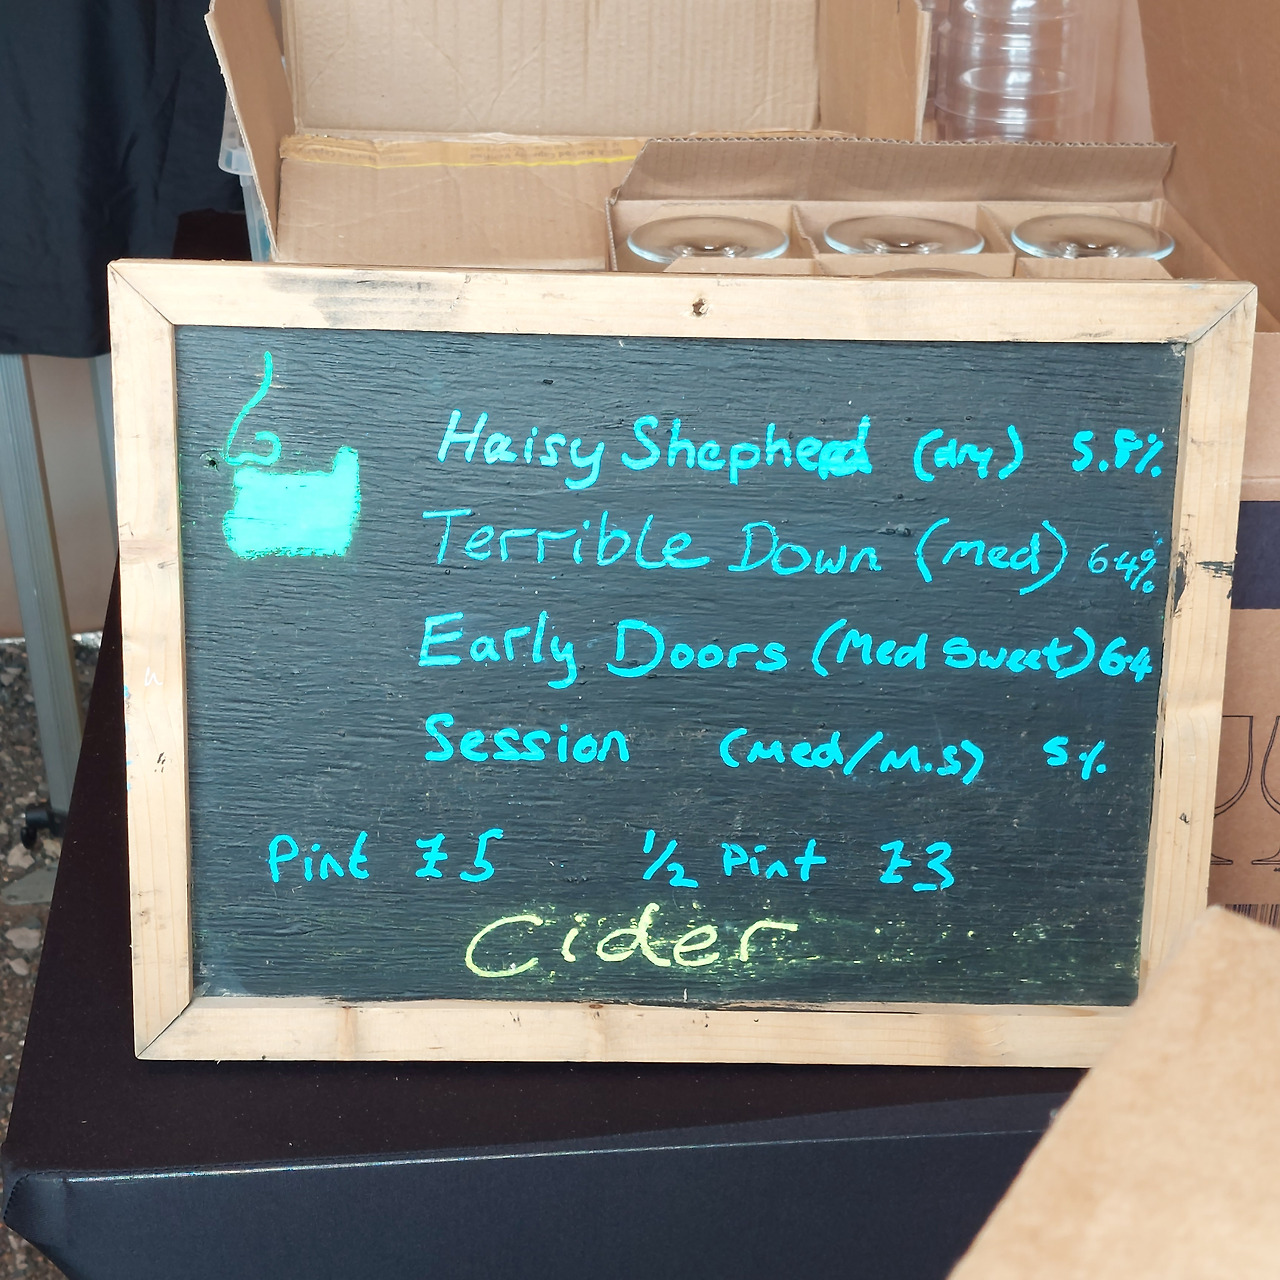 Haisy Shepherd (dry) 5.8%
Terrible Down (med) 6.4%
Early Doors (Med Sweet) 6.4
Session (Med/M.S) 5%
Pint £5 1/2 Pint £3
Cider